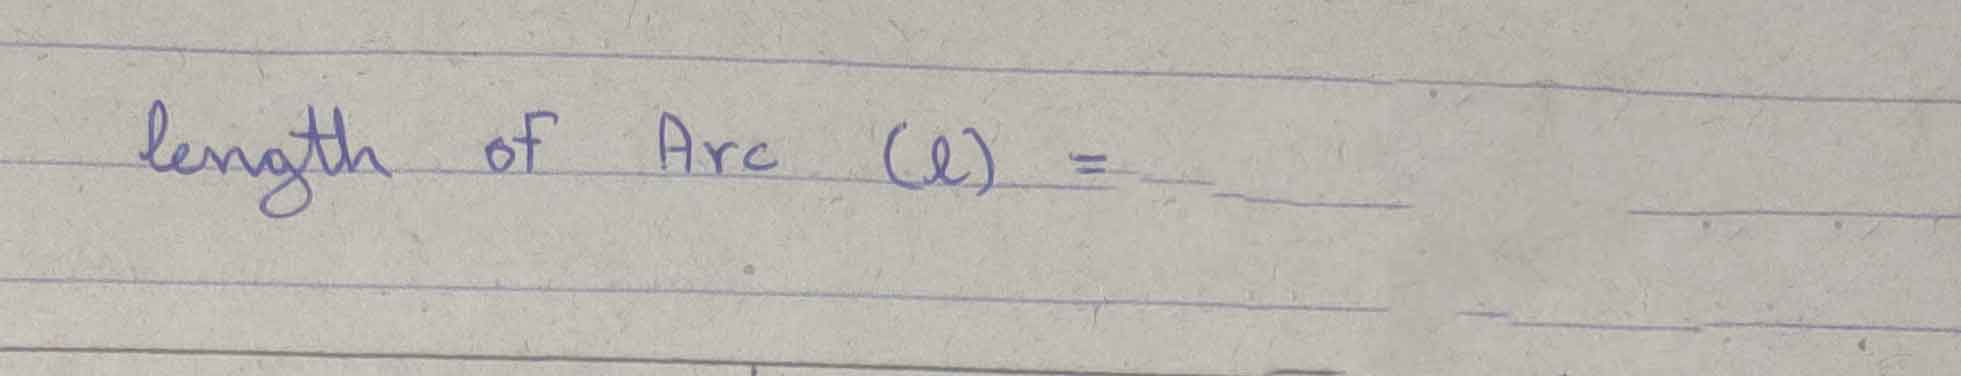 length of Arc (l) =